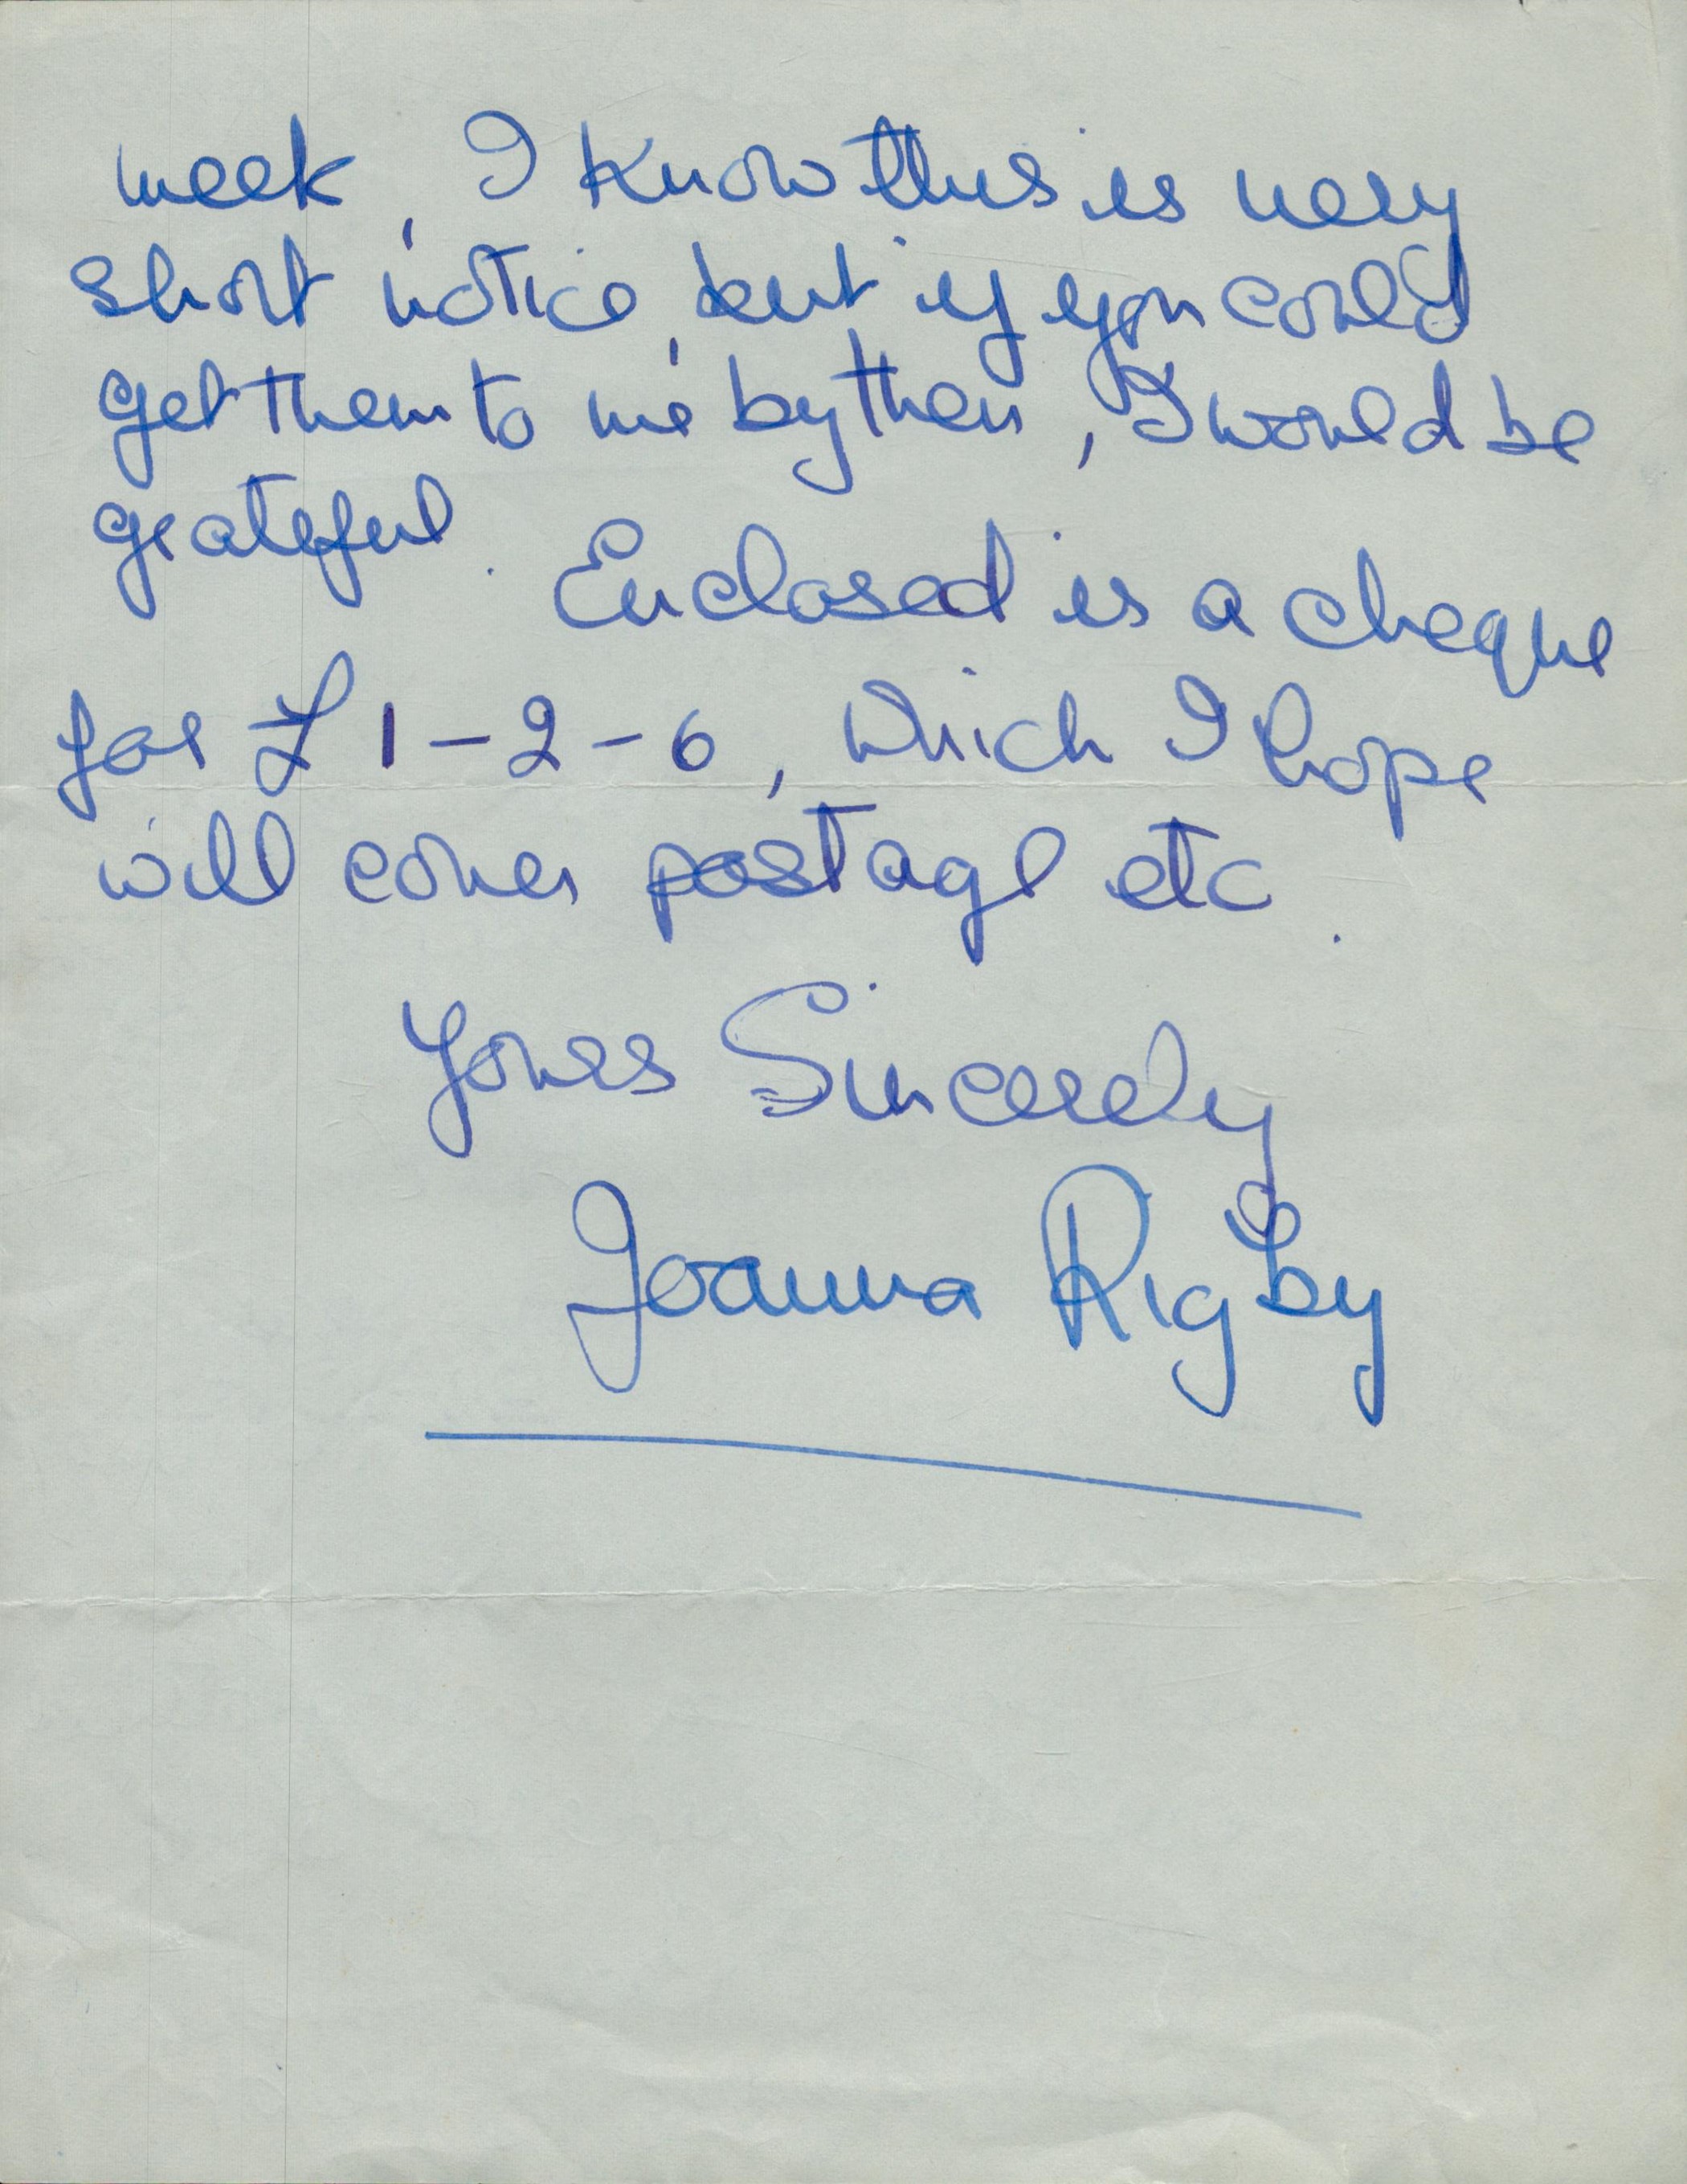 week, I know this is very
short notice, but if you could
get them to me by then, I would be
grateful. Enclosed is a cheque
for £1-2-6, which I hope
will cover postage etc.
Yours Sincerely
Joanna Rigby